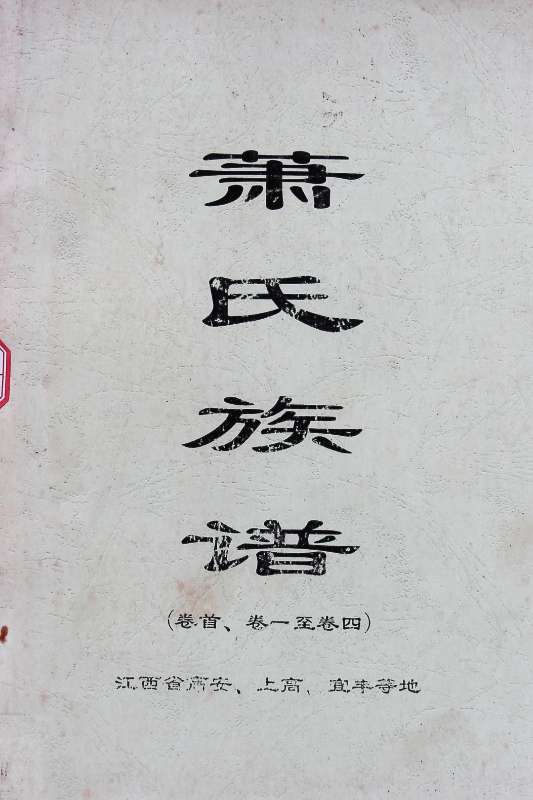 萧氏族谱
(卷首、卷一至卷四)
江西省高安、上高、宜丰等地